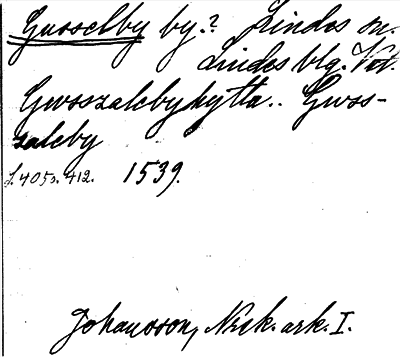 Gusselby by.? Lindes sn.
Lindes blg. Vstl.
Gwoszalebyhytta.. Gwos-
zaleby
s. 405 o. 412. 1539.
Johansson, Nisk. ark. I.